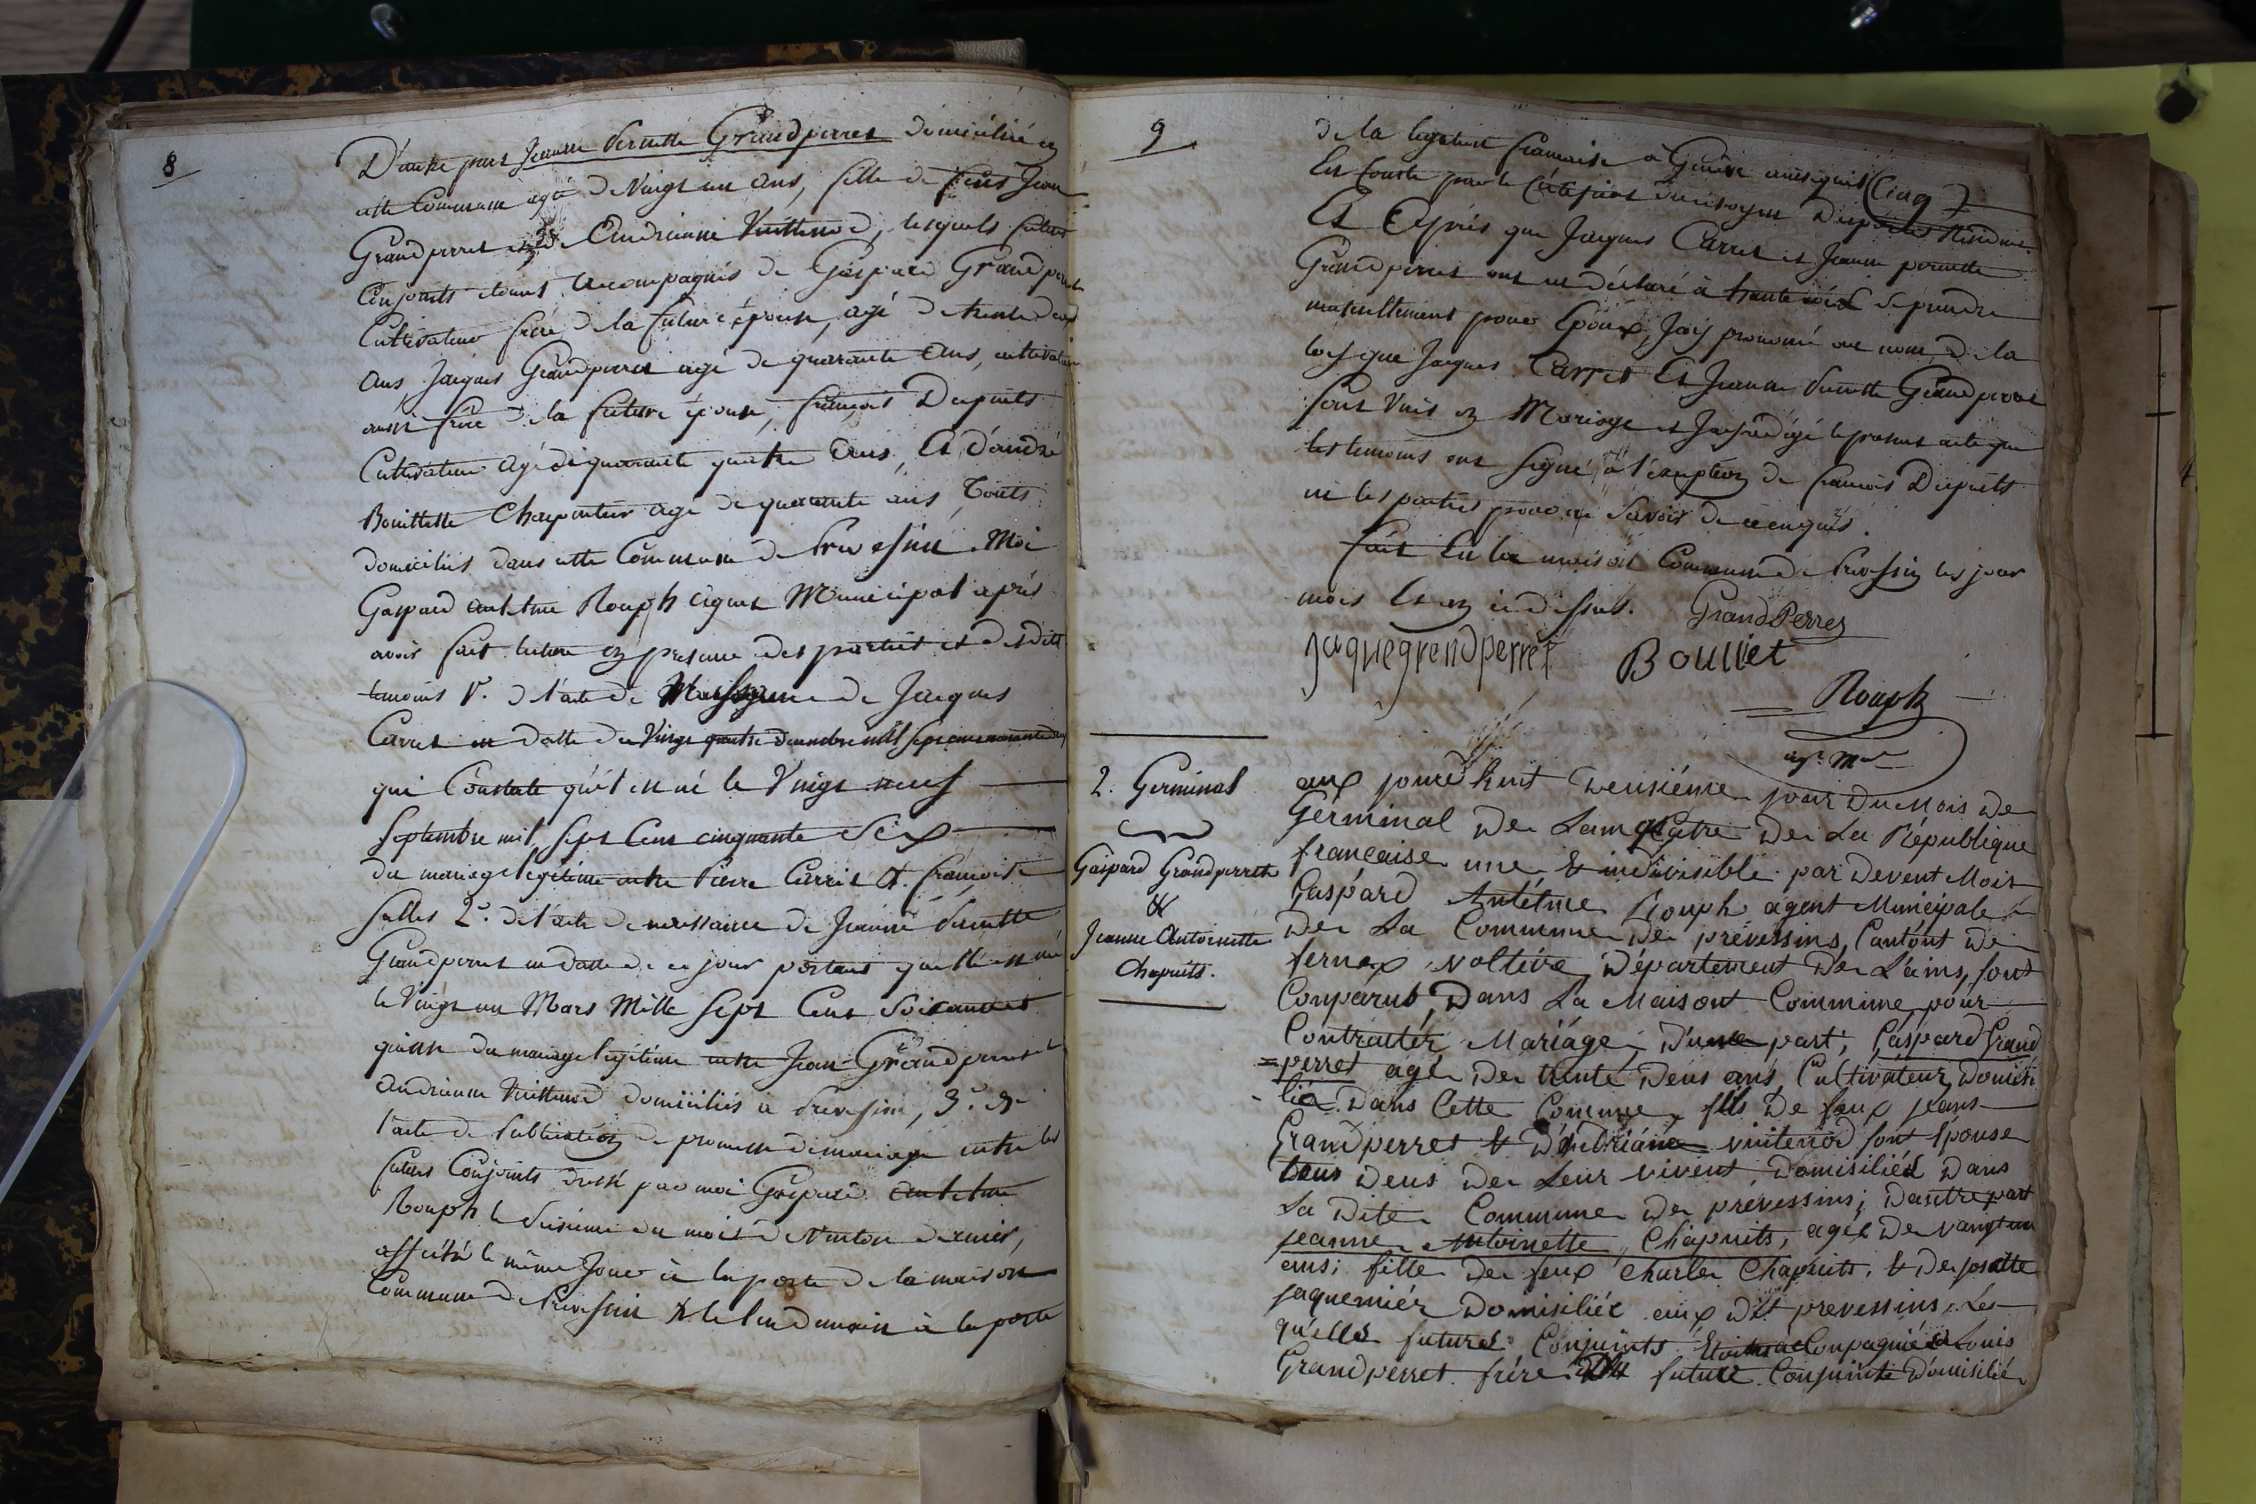 8
D'autre part Jeanne Pernette Grandperret domiciliée en
cette Commune agée de Vingt un ans, fille de feus Jean
Grandperret et d'Andrianne Vuittenod, lesquels futurs
Conjoints etant accompagnés de Gaspard Grandperret
Cultivateur frère de la future épouse, agé de trente deux
ans, Jacques Grandperret agé de quarante ans, cultivateur
aussi frère de la future épouse, françois Dupuits
Cultivateur agé de quarante quatre ans, Et d'andré
Bouillette Charpentier agé de quarante ans, touts
domiciliés dans cette Commune de Prevessin. Moi
Gaspard antelme Rouph agent Municipal après
avoir fait lecture en presence des parties et desdits
temoins 1°. de l'acte de Naissance de Jacques
Carret en datte du Vingt quatre decembre mil sept cent nonante
qui Constate qu'il est né le Vingt neuf
Septembre mil sept Cent cinquante Six
du mariage legitime entre Pierre Carret et françoise
Salles 2°. de l'acte de naissance de Jeanne Pernette
Grandperret en datte de ce jour portant qu'elle est née
le Vingt un Mars Mille Sept Cent Soixante et
quinze du mariage legitime entre Jean Grandperret et
andrianne Vuittenod domiciliés à Prevessin, 3°. de
l'acte de Publication de promesse de mariage entre les
futurs Conjoints dressé par moi Gaspard antelme
Rouph le du mois de Ventose dernier,
affiché le même Jour à la porte de la maison
Commune de Prevessin & le lendemain à la porte
9
de la legation française à Genève ainsi qu'il
En Conste par le Certificat du citoyen Résident
Et Après que Jacques Carret et Jeanne pernette
Grandperret ont eu déclaré à haute voix se prendre
mutuellement pour Epoux, J'ay prononcé au nom de la
loy que Jacques Carret Et Jeanne Pernette Grandperret
sont Unis en Mariage et J'ay redigé le present acte que
les temoins ont signé à l'exception de francois Dupuits
ni les parties pour ne savoir de ce enquis.
fait En la maison Commune de Prevessin les jour
mois Et an ci dessus. GrandPerret
Jaque grendperret Bouiliet
Rouph
agt. mal
2. Germinal
Gaspard Grandperret
&
Jeanne Antoinette
Chapuits.
aux jourdhuit Deusiéme jour Du Mois De
Germinal De Lam qatre De La République
française une & indivisible par Devent Moir
Gaspard Antélme Rouph agent Municipale
De La Commune De prévessins, Cantont De
fernex voltére, Département De L'ains, sont
Conparut, Dans La Maisont Commune, pour
Contracter Mariáge, D'une part, Gaspard Grand
=perret agé De trente Deus ans, Cultivateur, Domisi
lié Dans Cette Commune, fils De feux jeans
Grandperret & D'andriáne vuitenod sont Epouse
tous Deus De Leur vivent, Domisiliés Dans
La Dite Commune De prévessins; Dautre part
jeanne Antoinette Chapuits, agée De vangt un
ans; fille De feux Charle Chapuits, & De josette
jaqemiér Domisiliée aux Dit prevessins, Les
quelles futures Conjuints Etoient aConpagnié de Louis
Grandperret frére future Conjuinte Domisilié